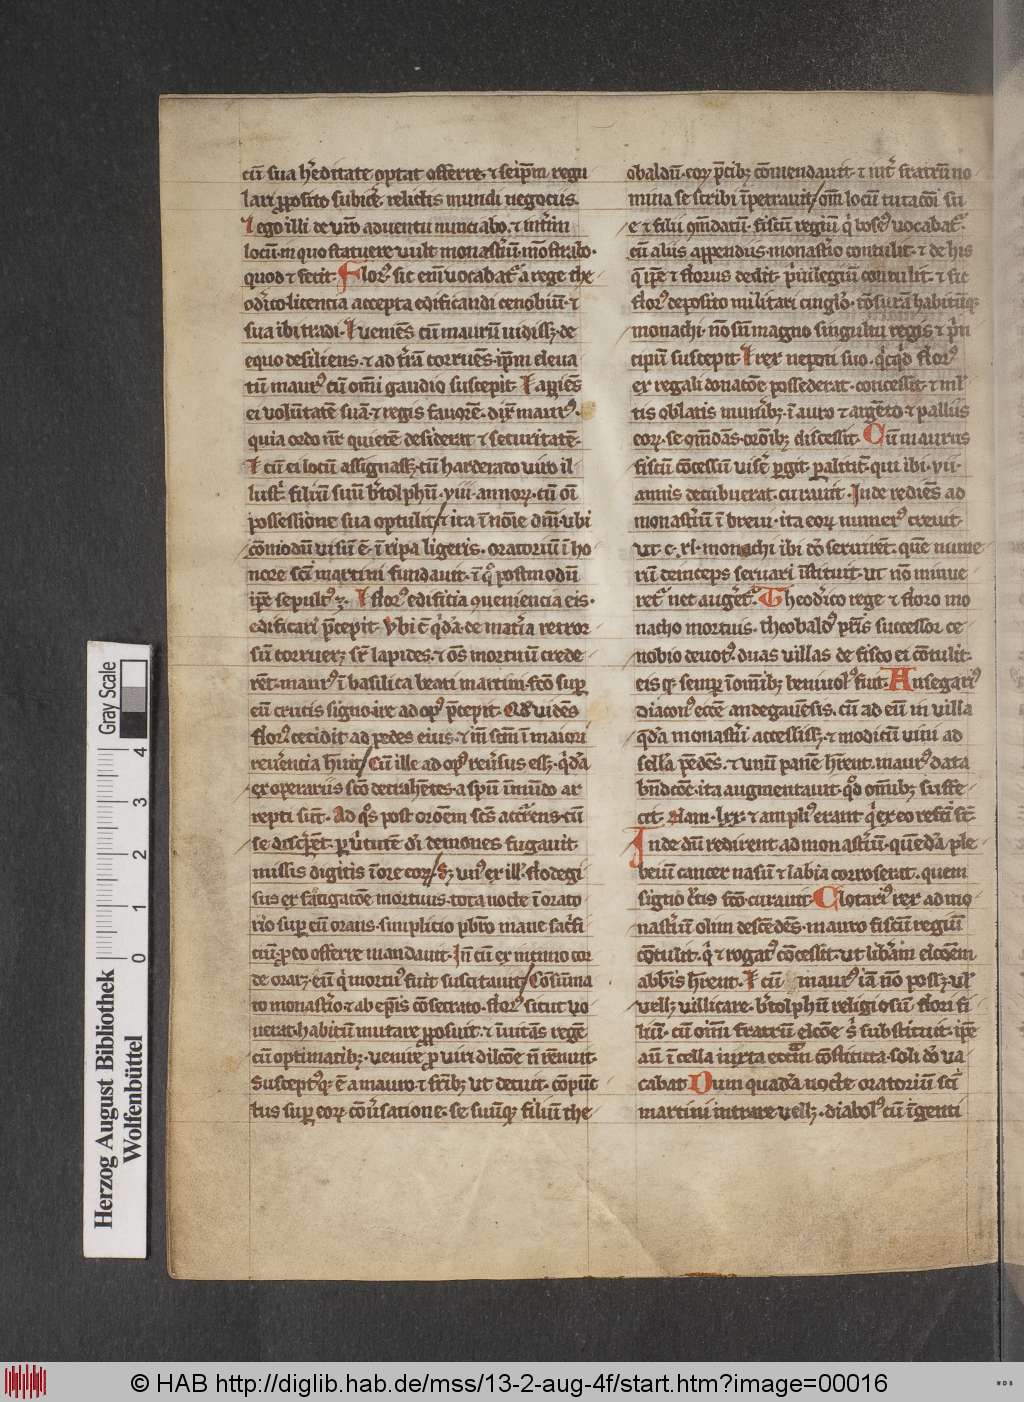 cū sua h̓editate optat offerre ⁊ seip̄m regu
lari ꝓposito subic̓e relictis mundi negociis.
Lego illi de vr̄o aduentu nunciabo. ⁊ int̓im
locum in quo statuere uult monast̓iū mōstrabo.
quod ⁊ fecit. Flor⁹ sic enī uocabat᷑ a rege the
od̓ico licentia accepta edificandi cenobiū ⁊
sua ibi tradi. ⁊ ueniēs cū maurū uidiss; de
equo desiliens. ⁊ ad t̓rā corruēs. ip̄m eleua
tū maur⁹ cū om̄i gaudio suscepit.
ei volūtatē suā ⁊ regis fauorē. dix̄ maur⁹.
quia ordo nr̄ quietē desiderat ⁊ securitatē.
⁊ cū ei locū assignass; cū harderado uiro il
lust̓ filiū suū b̓tolphū viii annoꝝ. cū oī
possessione sua optulit ⁊ ita ī nōīe dn̄i ubi
cōmodū uisū ē. ī ripa ligeris. oratoriū ī ho
nore sc̄i martini fundauit. ī q̊ postmodū
ip̄e sepult⁹ ē. ⁊ flor⁹ edificia ꝯueniencia eis.
edificari p̄cepit. Vbi c̄ q̓dā de mat̓ia retror
sū corruer; sr̄ lapides. ⁊ oēs mortuū crede
rēt. maur⁹ ī basilica beati martini fc̄o suꝑ
eū crucis signo ire ad op⁹ p̄cepit. Qd̓ vidēs
flor⁹ cecidit ad pedes eius. ⁊ in̄ sēm̄ ī maiori
reu̓encia h̓uit. Cū ille ad op⁹ reu̓sus ess; q̓dā
ex operariis sc̄o detrahētes a spū īmūdo ar
repti sūt. Ad q̊s post orōem sc̄s accurrens. cū
se discꝑēt. ꝑ u̓tutē dī demones fugauit
missis digitis ī ore eoꝝ. S; vn⁹ ex ill᷒ flodegi
sus ex fatigatōe mortuus. tota nocte ī orato
rio suꝑ eū orans. simplicio pb̄ro mane sac̓fi
ciū ꝓ eo offerre mandauit. In̄ cū ex intimo cor
de orar; eū q̓ mortu⁹ fuit suscitauit. Cōsūma
to monast̓io ⁊ ab ep̄is cōsecrato. flor⁹ sicut uo
uerat habitū mutare ꝓposuit. ⁊ īuitās regē
cū optimatib; venire ꝓ viri dilc̄oe n̄ rēnuit.
Suscept⁹q; ē a mauro. ⁊ fr̄ib; vt decuit. cōpūc
tus suꝑ eoꝝ cōu̓satione. se suūq; filiū the
obaldū. eoꝝ p̄cib; cōmendauit ⁊ int̓ fratrū no
mina se scribi īpetrauit. om̄ locū tutacōi su
e ⁊ filii ꝯmdatū. fiscū regiū q̓ bose⁹ uocabat᷑.
cū aliis appendiis monast̓io contulit. ⁊ de his
q̄ ip̄e ⁊ florus dedit. p̓uilegiū contulit. ⁊ sic
flor⁹ deposito militari cingl̓o. tōsurā habitūq;
monachi. nō sn̄ magno singultu regis ⁊ p̓n
cipū suscepit. ⁊ rex nepoti suo. q̓cq̓d flor⁹
ex regali donatōe possederat. concessit ⁊ ml̓
tis oblatis mun̓ib; ī auro ⁊ arg̓ēto ⁊ palliis
eoꝝ se ꝯmdās orōib; discessit. Cū maurus
fiscū cōcessū vis̓e ꝑgit. ꝑalitic̄ qui ibi. vii.
annis decubuerat curauit. Inde rediēs ad
monast̓iū ī breui. ita eoꝝ numer⁹ creuit.
vt c. xl. monachi ibi dō seruirēt. quē nume
rū deinceps seruari īstituit. vt nō minue
ret᷑ nec auger̄et᷑. Theod̓ico rege ⁊ floro mo
nacho mortuis. theobald⁹ pr̄is successor ce
nobio deuot⁹. duas villas de fisco ei cōtulit.
eisq; semꝑ ī om̄ib; beniuol⁹ fuit. Ansegari⁹
diacon⁹ ecc̄e andegauēsis. cū ad eū in villa
q̓dā monast̓ii accessiss; ⁊ modicū vini ad
sella pēdēs. ⁊ vnū panē h̓ent. maur⁹ data
bn̄dcōe. ita augmentauit. q̊d om̄ib; suffe
cit. Nam. lxx. ⁊ ampli⁹ erant q̓ ex eo refc̄i st̄.
Inde dū redirent ad monast̓iū. quēdā ple
beiū cancer nasū ⁊ labia corroserat. quem
signo cr̄cis fc̄o curauit. Clotari⁹ rex ad mo
nast̓iū olim descēdēs. mauro fiscū regiū
cōtulit. q̓ ⁊ rogat⁹ cōcessit. ut lib̓am elcōem
abb̄is h̓rent. ⁊ cū maur⁹ iā nō poss; vl̓
vell; villicare. b̓tolphū religiosū flori fi
liū. cū om̄iū fratrū elcōe s̓ substituit. ip̄e
aū ī cella iuxta ecc̄am cōstituta. soli dō va
cabat. Dum quadā nocte oratoriū sc̄i
martini intrare vell;. diabol⁹ cū īgenti
Herzog August Bibliothek
Wolfenbüttel
Gray Scale
0 1 2 3 4
© HAB http://diglib.hab.de/mss/13-2-aug-4f/start.htm?image=00016